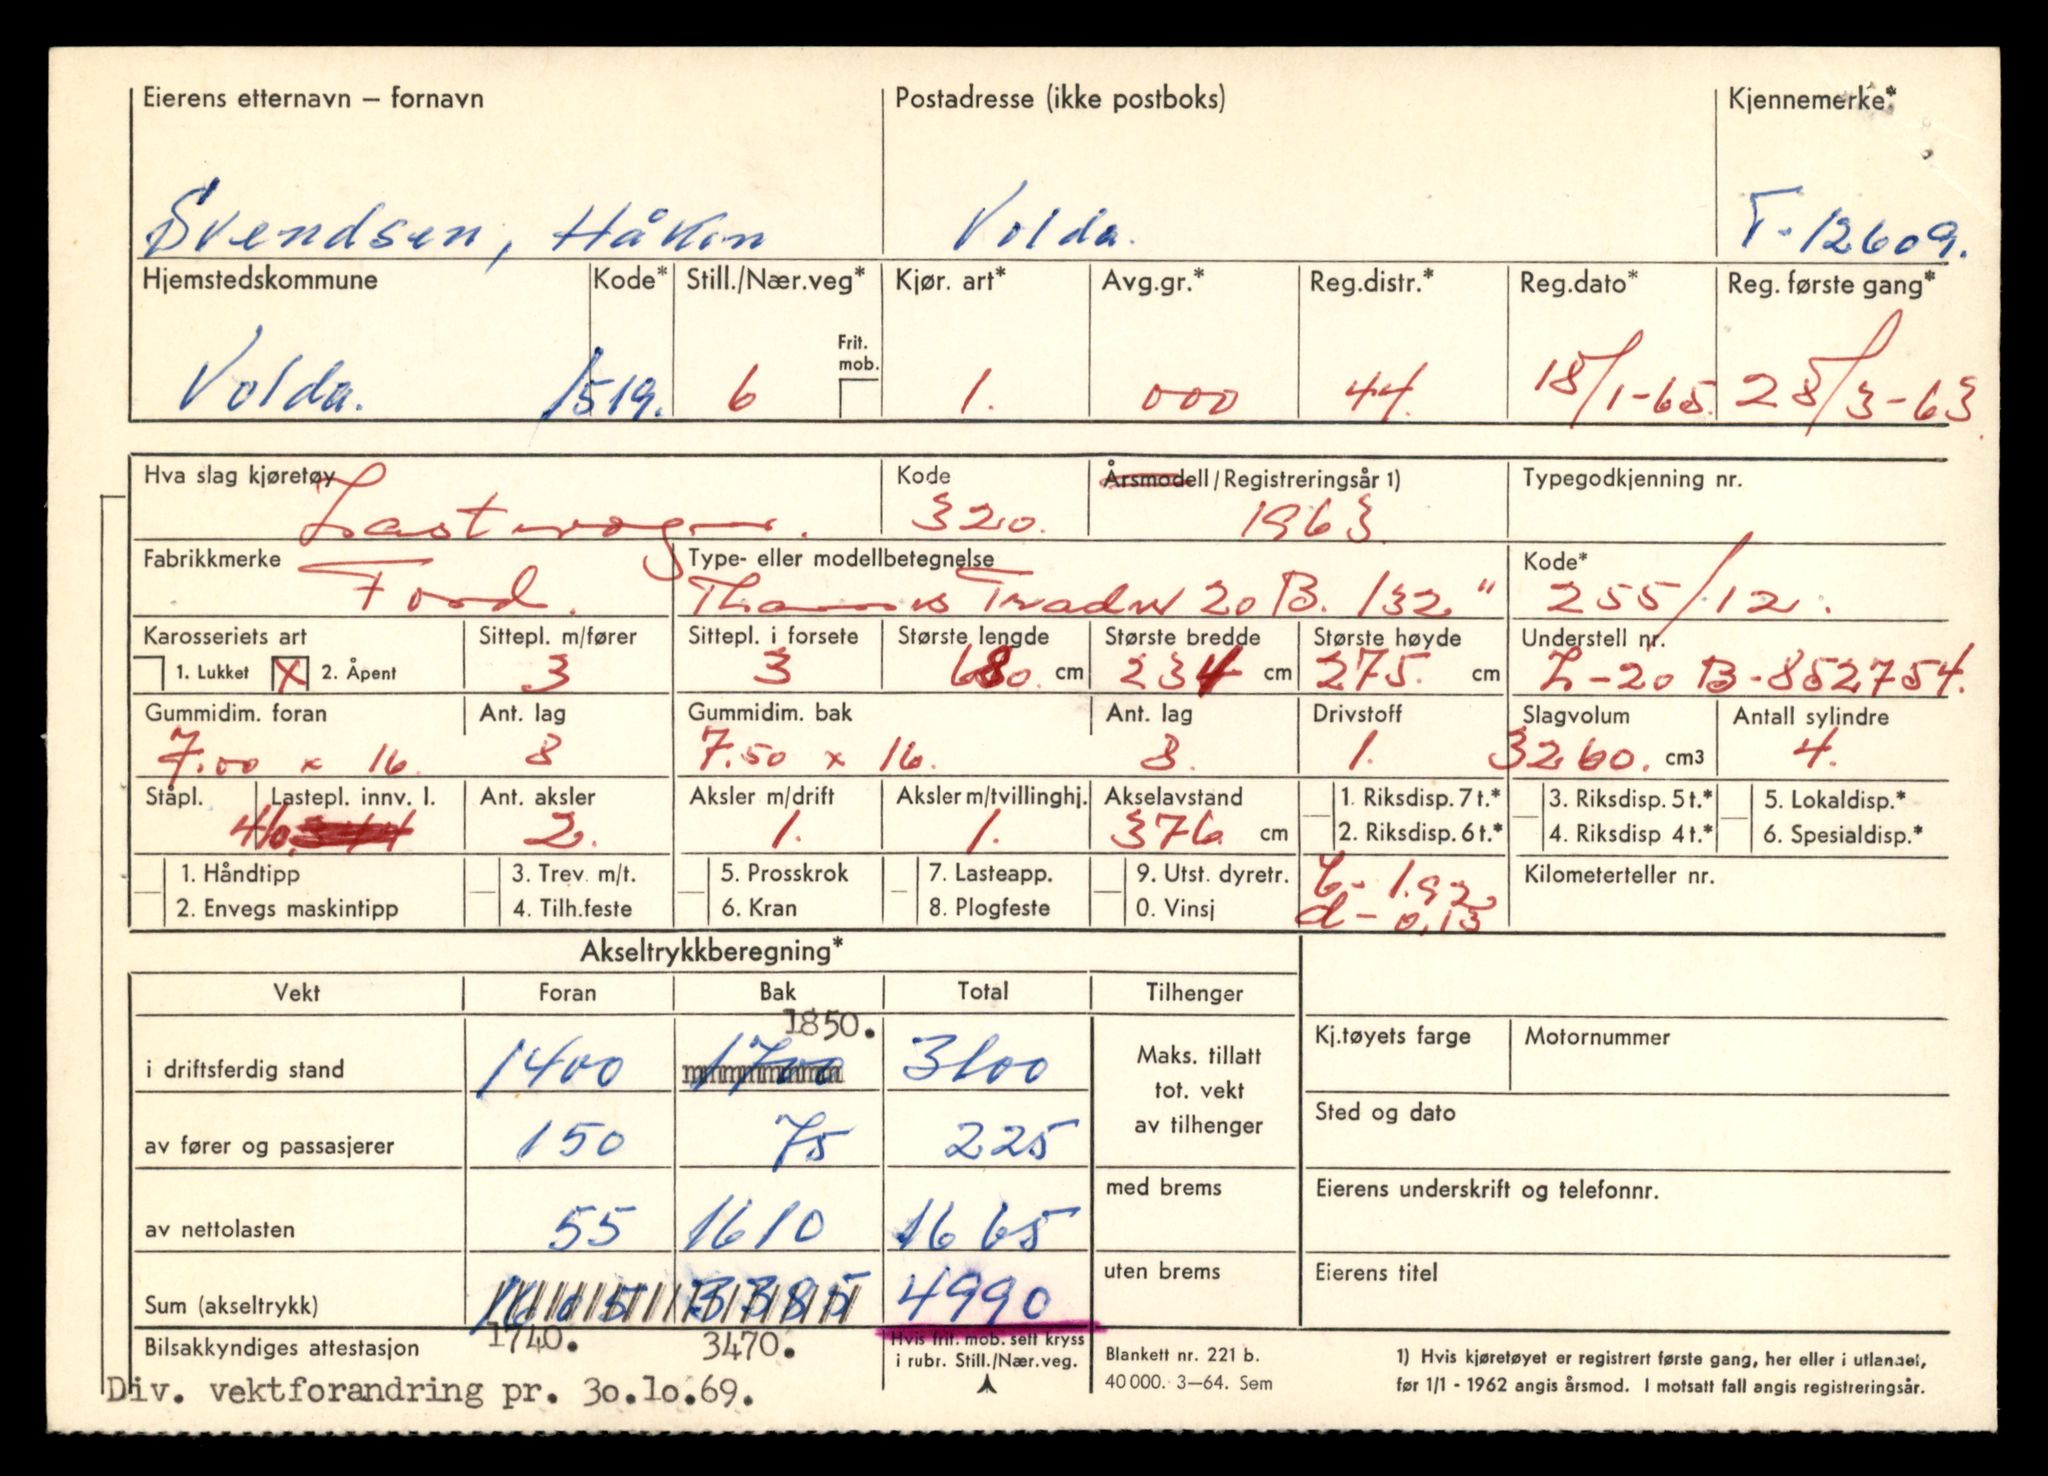 Eierens etternavn – fornavn Postadresse (ikke postboks) Kjennemerke*
Svendsen, Håkon Volda. T-12609.
Hjemstedskommune Kode* Still./Nær.veg* Kjør. art* Avg.gr.* Reg.distr.* Reg.dato* Reg. første gang*
Frit. mob.
Volda. 1519. 6 1. 000 44. 18/1-65. 28/3-63
Hva slag kjøretøy Kode Årsmodell/Registreringsår 1) Typegodkjenning nr.
Lastvogn. 320. 1963
Fabrikkmerke Type- eller modellbetegnelse Kode*
Ford. Thames Trader 20 B. 132" 255/12.
Karosseriets art Sittepl. m/fører Sittepl. i forsete Største lengde Største bredde Største høyde Understell nr.
1. Lukket X 2. Åpent 3 3 680. cm 234 cm 275. cm L-20 B-852754.
Gummidim. foran Ant. lag Gummidim. bak Ant. lag Drivstoff Slagvolum Antall sylindre
7.00 x 16. 8 7.50 x 16. 8. 1. 3260. cm3 4.
Ståpl. Lastepl. innv. l. Ant. aksler Aksler m/drift Aksler m/tvillinghj. Akselavstand 1. Riksdisp. 7 t.* 3. Riksdisp. 5 t.* 5. Lokaldisp.*
410. 2. 1. 1. 376. cm 2. Riksdisp. 6 t.* 4. Riksdisp 4 t.* 6. Spesialdisp.*
1. Håndtipp 3. Trev. m/t. 5. Prosskrok 7. Lasteapp. 9. Utst. dyretr. L- 1.92 Kilometerteller nr.
2. Envegs maskintipp 4. Tilh.feste 6. Kran 8. Plogfeste 0. Vinsj d- 0,13
Akseltrykkberegning*
Vekt Foran Bak Total Tilhenger
1850.
i driftsferdig stand 1400 1700 3100 Maks. tillatt tot. vekt av tilhenger Kj.tøyets farge Motornummer
av fører og passasjerer 150 75 225 Sted og dato
av nettolasten 55 1610 1665 med brems Eierens underskrift og telefonnr.
Sum (akseltrykk) 1605 3385 4990 uten brems Eierens titel
Bilsakkyndiges attestasjon 1740. 3470. Hvis frit. mob. sett kryss i rubr. Still./Nær.veg. Blankett nr. 221 b. 1) Hvis kjøretøyet er registrert første gang, her eller i utlandet,
Div. vektforandring pr. 30.10.69. 40 000. 3–64. Sem før 1/1 - 1962 angis årsmod. I motsatt fall angis registreringsår.